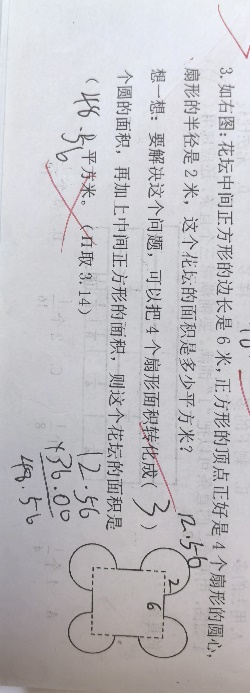 3. 如右图：花坛中间正方形的边长是6米，正方形的顶点正好是4个扇形的圆心，
扇形的半径是2米，这个花坛的面积是多少平方米？
想一想：要解决这个问题，可以把4个扇形面积转化成（3）
个圆的面积，再加上中间正方形的面积，则这个花坛的面积是
（48.56平方米。（π取3.14）
12.56
2
6
12.56
+36.00
48.56